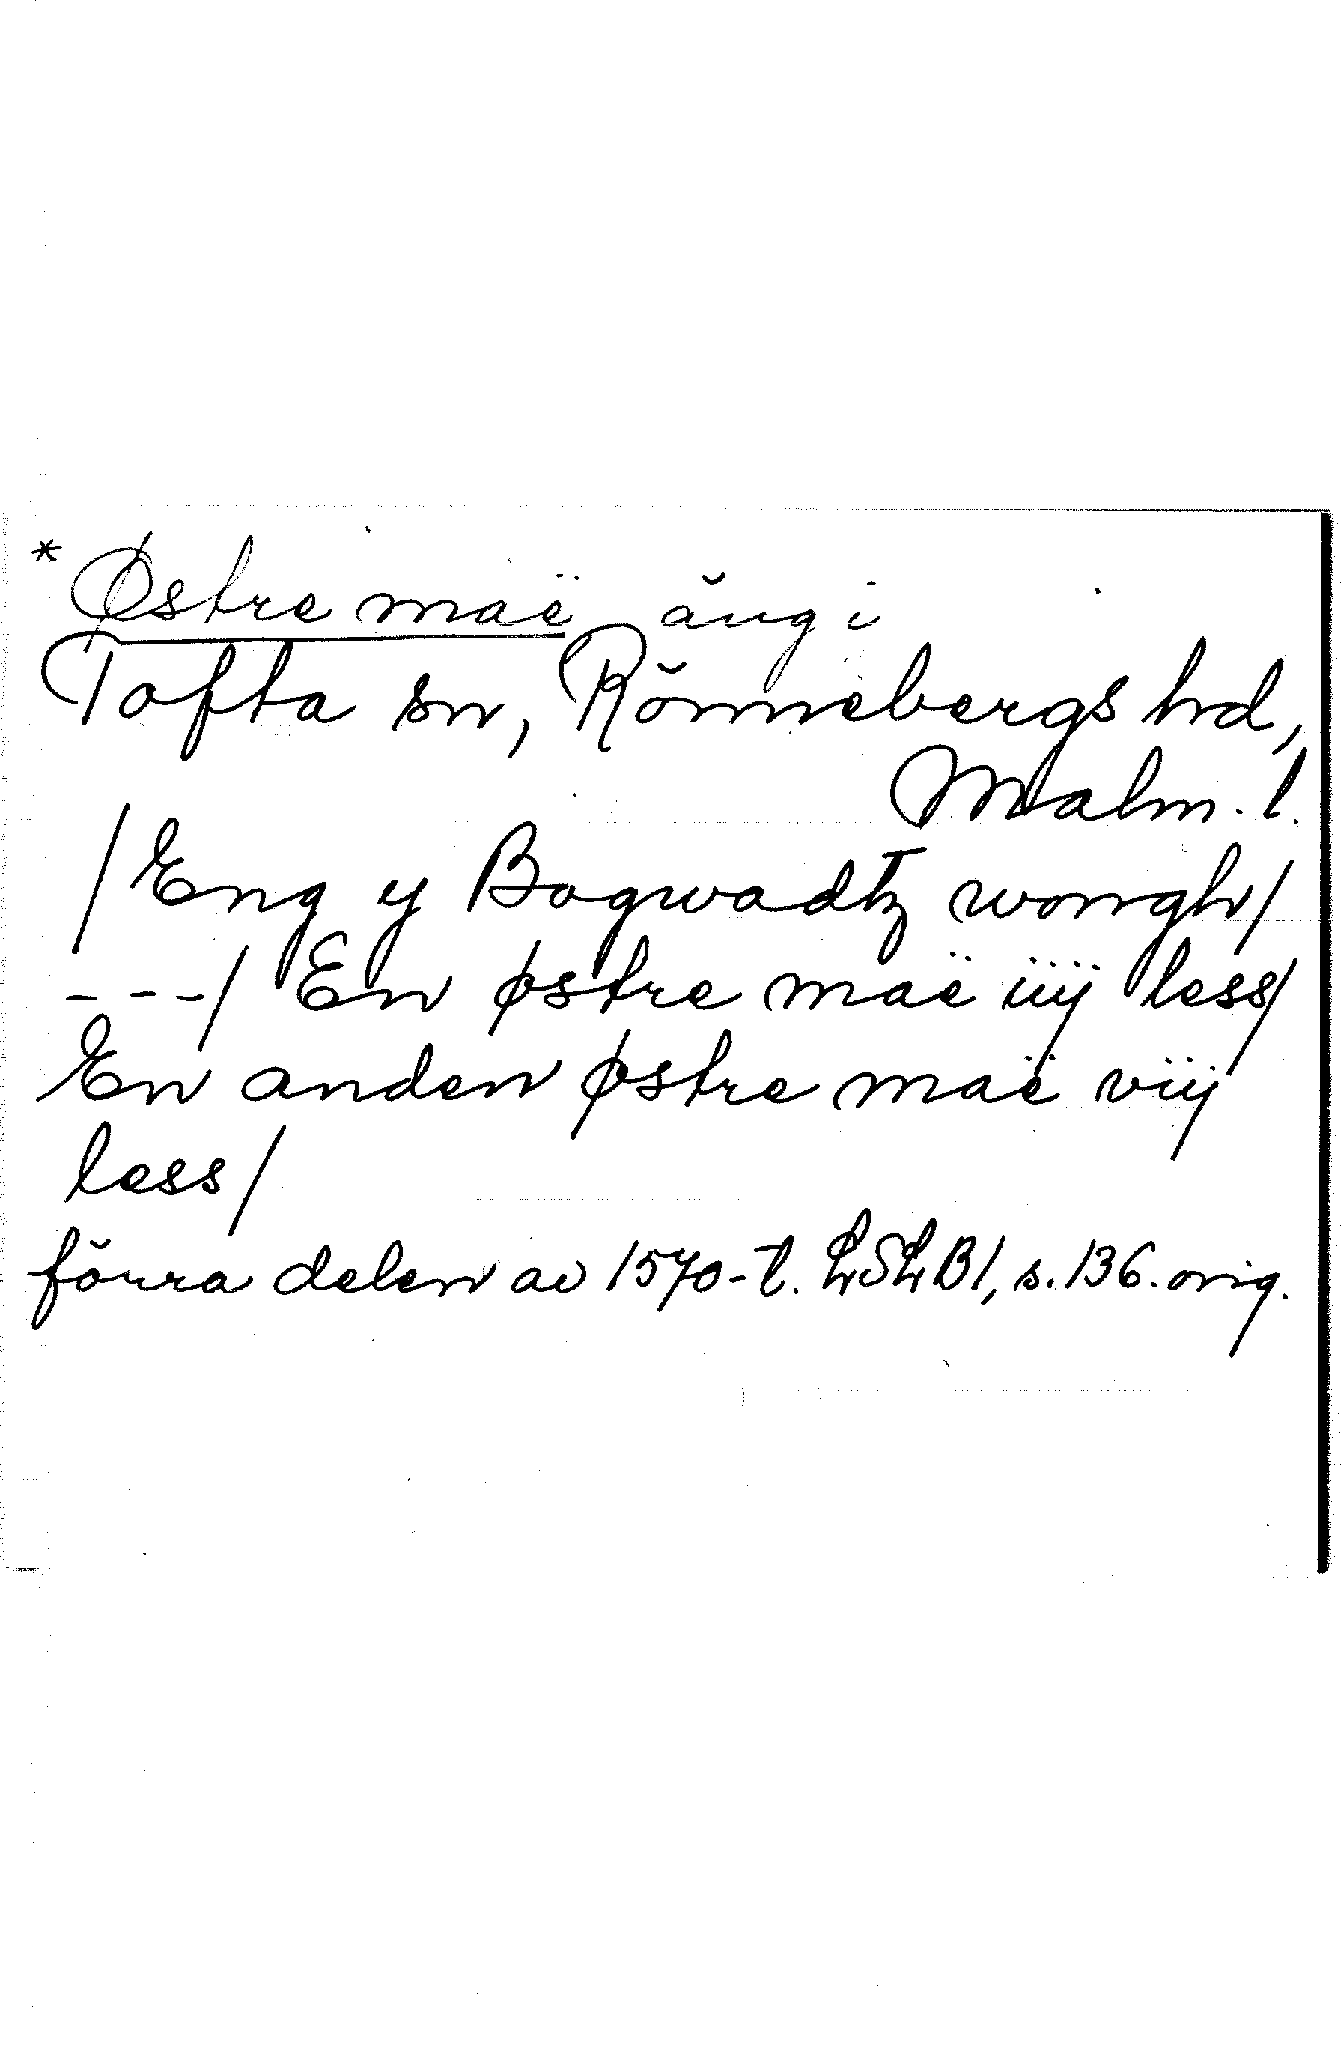 *Østre maë äng i
Tofta sn, Rönnebergs hd,
Malm. l.
/Eng y Bogwadtz wongh/
---/ En østre maë iiij less/
En anden østre maë viij
less/
förra delen av 1570-t. LSLB1, s. 136. orig.